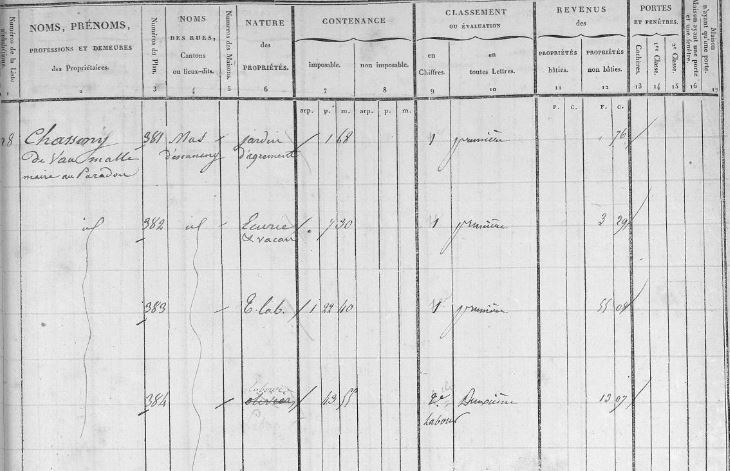 Numéros de la Liste
NOMS, PRÉNOMS,
PROFESSIONS ET DEMEURES
des Propriétaires.
Numéros du Plan.
NOMS
DES RUES,
Cantons
ou lieux-dits.
Numéros des Maisons.
NATURE
des
PROPRIÉTÉS.
CONTENANCE
imposable.
non imposable.
CLASSEMENT
OU ÉVALUATION
en
Chiffres.
en
toutes Lettres.
REVENUS
des
PROPRIÉTÉS
bâties.
PROPRIÉTÉS
non bâties.
PORTES
ET FENÊTRES.
Cochères.
1re Classe.
2e Classe.
Maison ayant une porte
et une fenêtre.
Maison
n'ayant qu'une porte.
2 3 4 5 6 7 8 9 10 11 12 13 14 15 16 17
arp. p. m. arp. p. m. F. C. F. C.
381 Mas jardin 1 68 1 première 76
de d'agrément
maire au
id 382 id Ecurie 7 30 1 première 3 29
383 T. lab. 1 22 40 1 première 55 08
384 olivier 43 55 2e Deuxième 13 07
labour